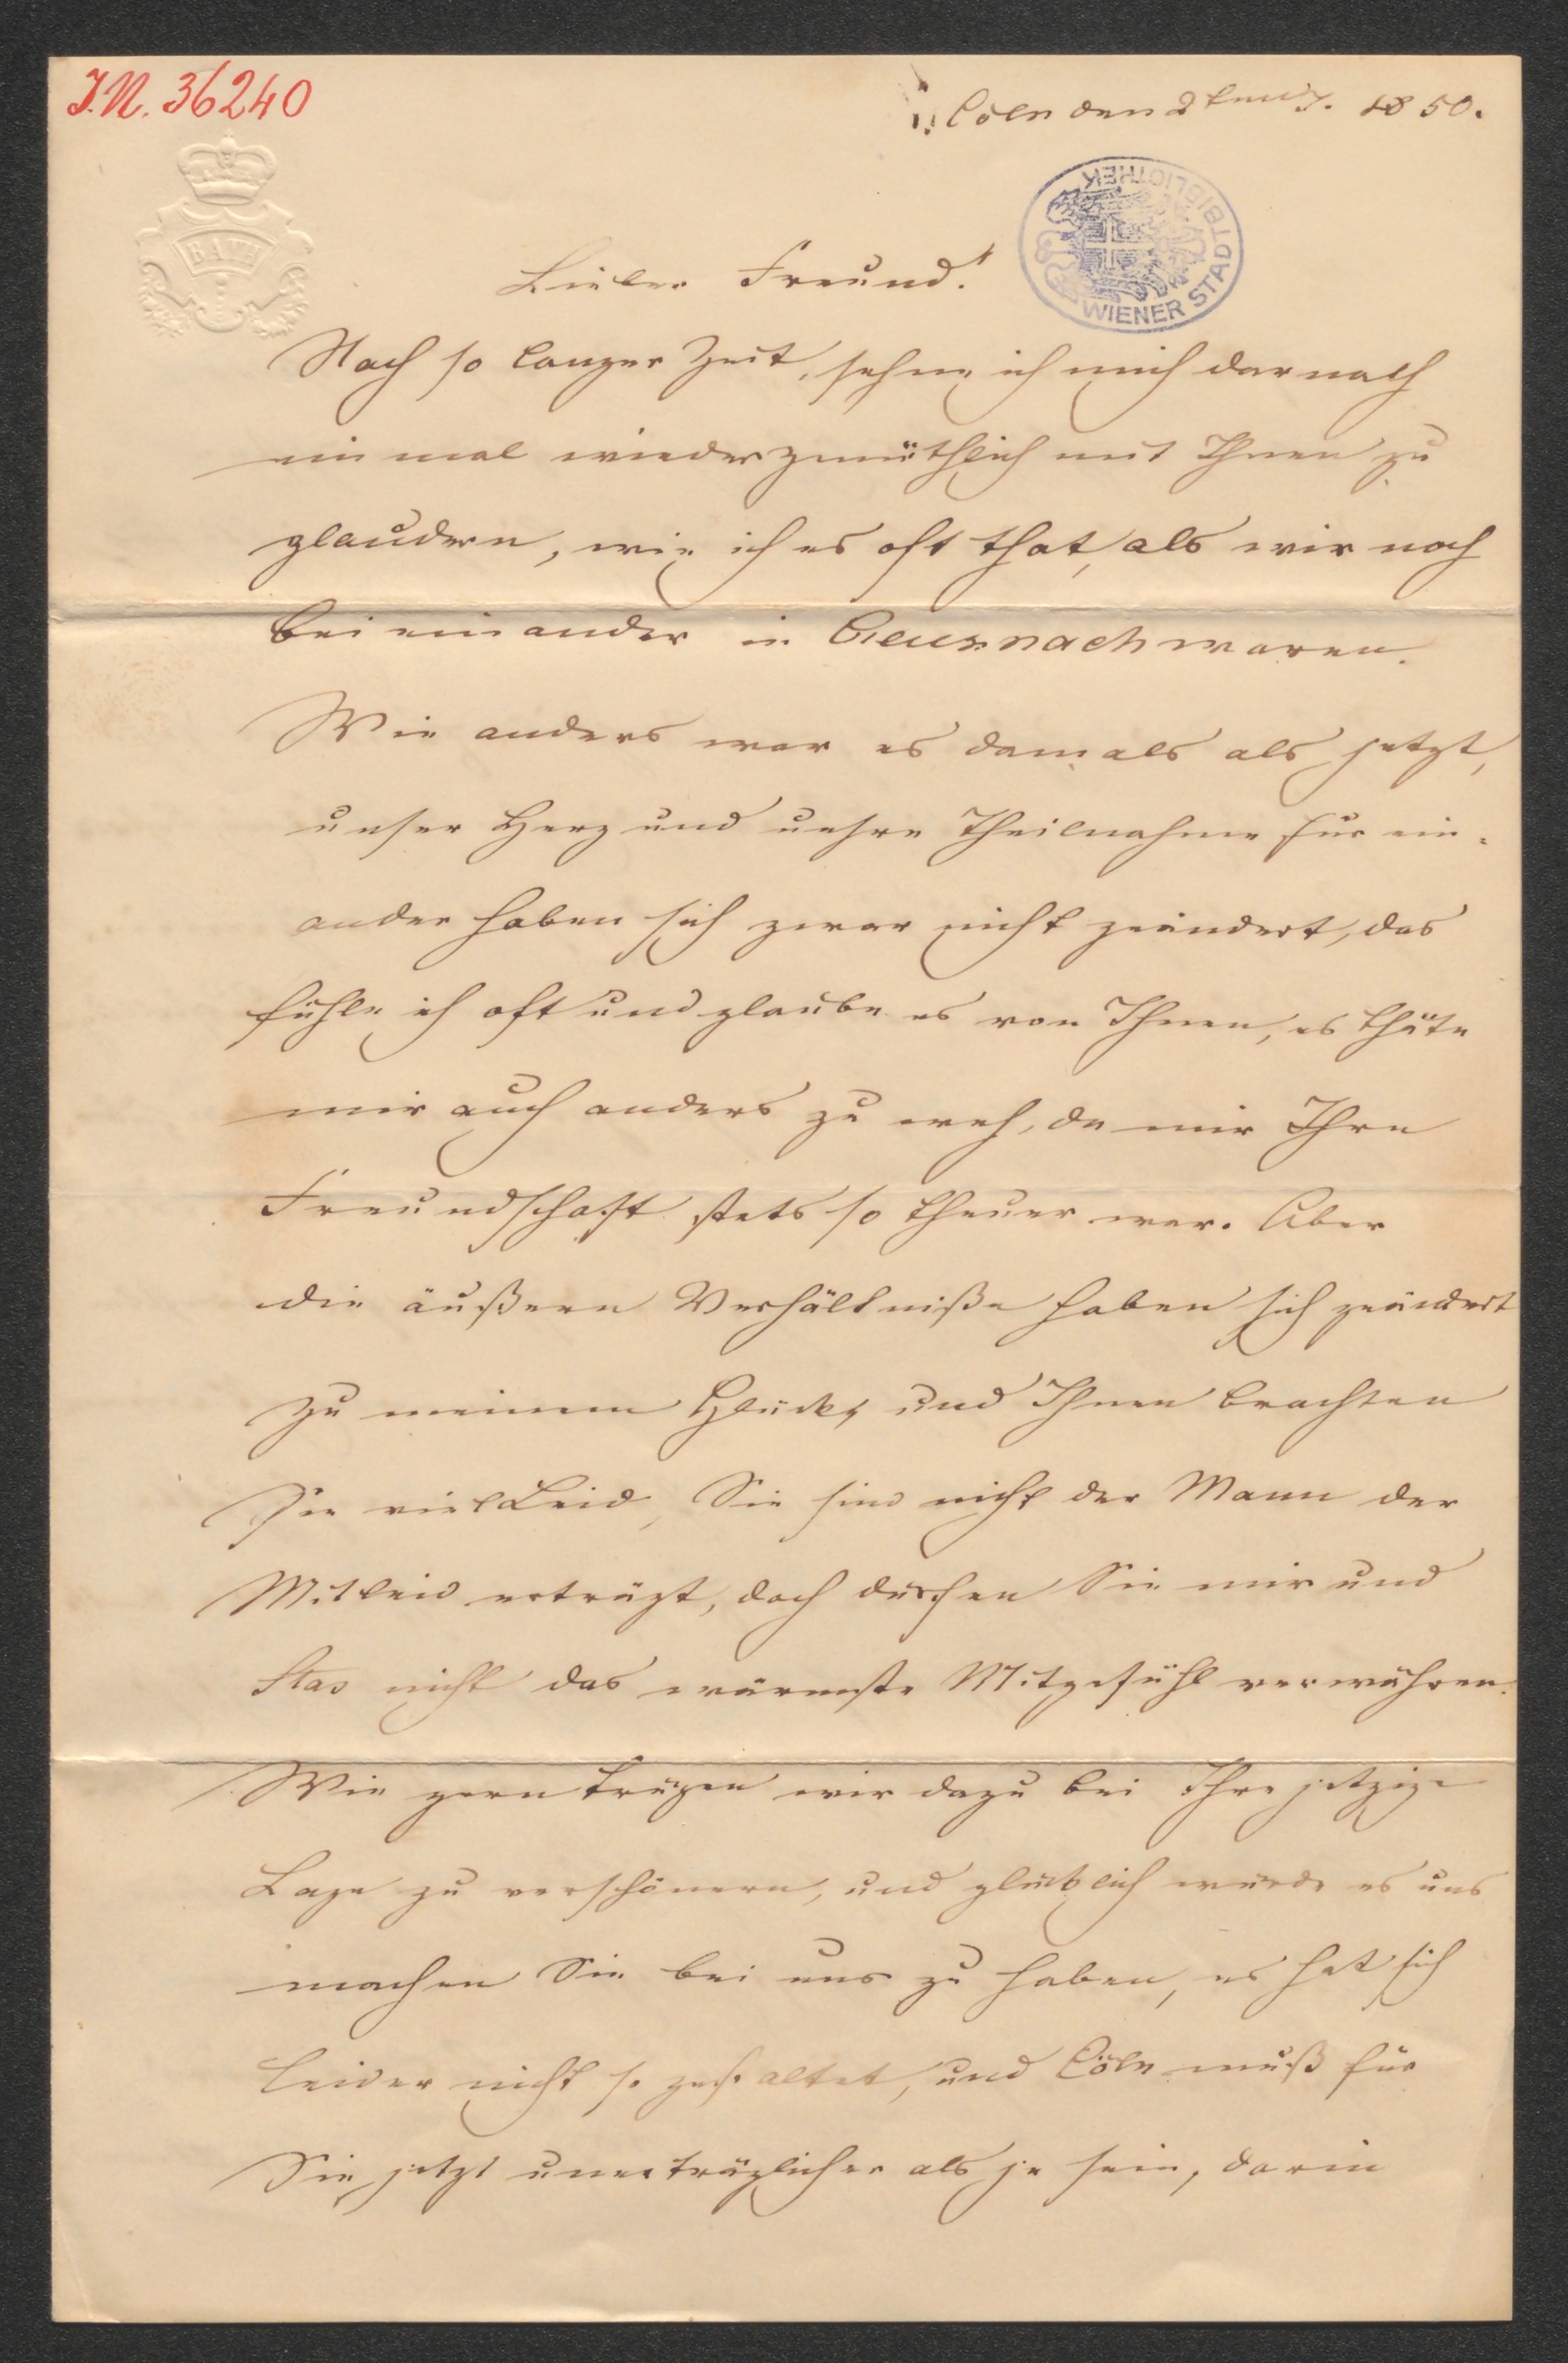 J.N. 36240
Cöln den 2ten 7. 1850.
BATH
WIENER STADTBIBLIOTHEK
Lieber Freund!
Nach so langer Zeit, sehne ich mich darnach
ein mal wieder gemüthlich mit Ihnen zu
plaudern, wie ich es oft that, als wir noch
bei einander in Creuznach waren.
Wie anders war es damals als jetzt,
unser Herz und unsre Theilnahme für ein-
ander haben sich zwar nicht geändert, das
fühle ich oft und glaube es von Ihnen, es thäte
mir auch anders zu weh, da mir Ihre
Freundschaft stets so theuer war. Aber
die äußern Verhältniße haben sich geändert
zu meinem Glücke und Ihnen brachten
Sie viel Leid, Sie sind nicht der Mann der
Mitleid erträgt, doch dürfen Sie mir und
Stas nicht das wärmste Mitgefühl verwehren.
Wie gern trügen wir dazu bei Ihre jetzige
Lage zu verschönern, und glücklich würde es uns
machen Sie bei uns zu haben, es hat sich
leider nicht so gestaltet, und Cöln muß für
Sie jetzt unerträglicher als je sein, darin